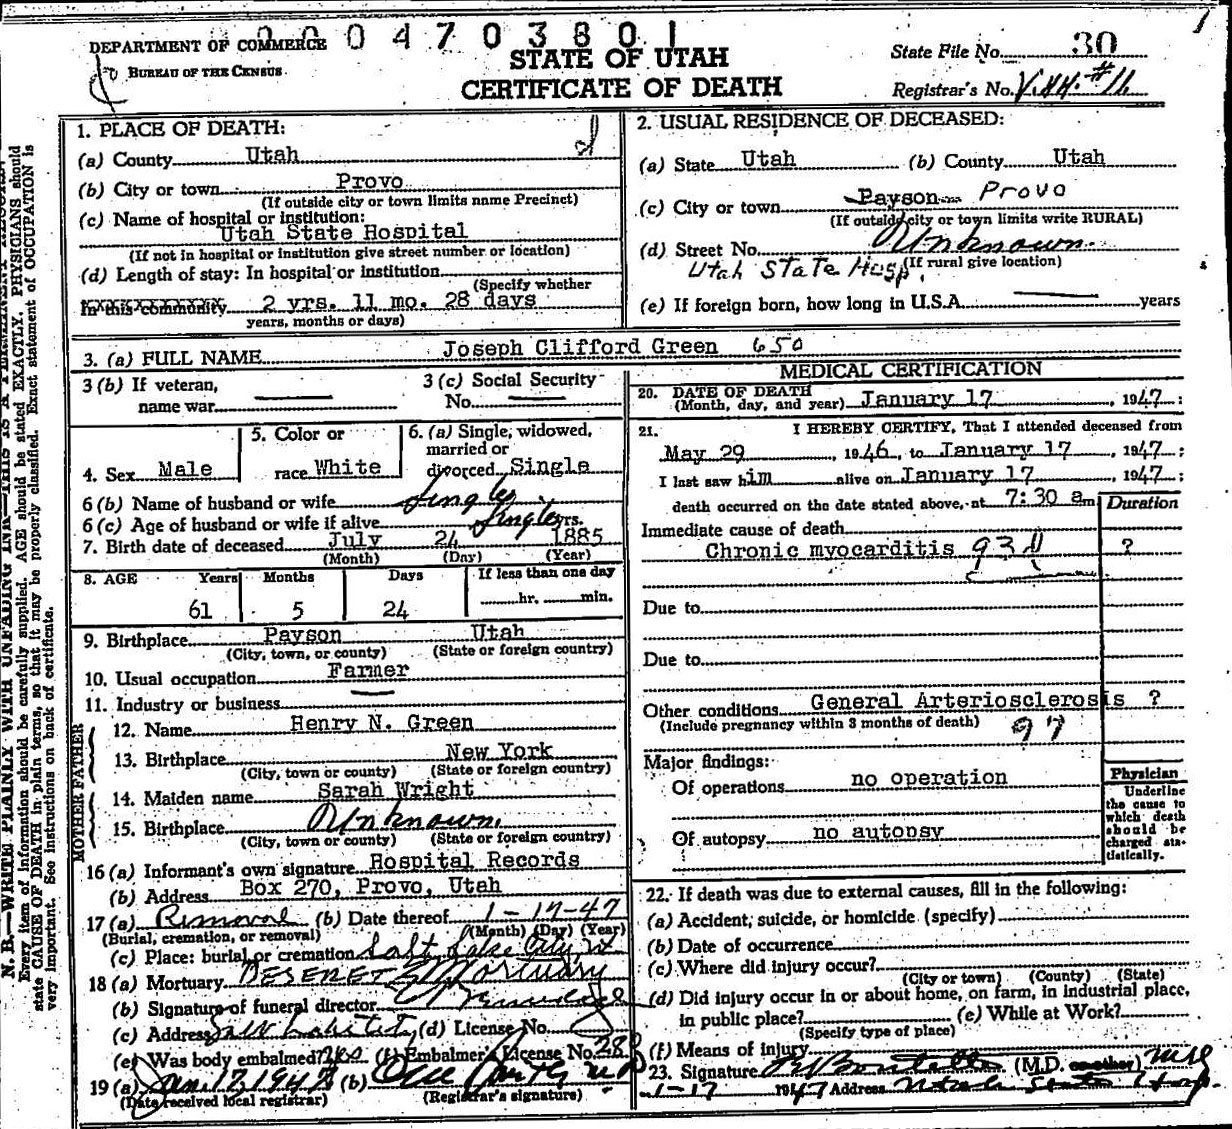 DEPARTMENT OF COMMERCE
BUREAU OF THE CENSUS
0 0 4 7 0 3 8 0 1
STATE OF UTAH
CERTIFICATE OF DEATH
State File No. 30
Registrar's No. V.44.#11
1. PLACE OF DEATH:
(a) County Utah
(b) City or town Provo
(If outside city or town limits name Precinct)
(c) Name of hospital or institution:
Utah State Hospital
(If not in hospital or institution give street number or location)
(d) Length of stay: In hospital or institution
(Specify whether
In this community 2 yrs. 11 mo. 28 days
years, months or days)
2. USUAL RESIDENCE OF DECEASED:
(a) State Utah (b) County Utah
(c) City or town Payson Provo
(If outside city or town limits write RURAL)
(d) Street No. Unknown
(If rural give location)
Utah State Hosp.
(e) If foreign born, how long in U.S.A. years
3. (a) FULL NAME Joseph Clifford Green 650
3 (b) If veteran, name war
3 (c) Social Security No.
4. Sex Male
5. Color or race White
6. (a) Single, widowed, married or divorced Single
6 (b) Name of husband or wife Single
6 (c) Age of husband or wife if alive Single yrs.
7. Birth date of deceased July 24 1885
(Month) (Day) (Year)
8. AGE Years Months Days If less than one day
61 5 24 hr. min.
9. Birthplace Payson Utah
(City, town, or county) (State or foreign county)
10. Usual occupation Farmer
11. Industry or business
FATHER
12. Name Henry N. Green
13. Birthplace New York
(City, town or county) (State or foreign country)
MOTHER
14. Maiden name Sarah Wright
15. Birthplace Unknown
(City, town or county) (State or foreign country)
16 (a) Informant's own signature Hospital Records
(b) Address Box 270, Provo, Utah
17 (a) Removal (b) Date thereof 1-17-47
(Burial, cremation, or removal) (Month) (Day) (Year)
(c) Place: burial or cremation Salt Lake City, Ut
18 (a) Mortuary DESERET Mortuary
(b) Signature of funeral director
(c) Address Salt Lake City (d) License No.
(e) Was body embalmed? Yes (f) Embalmer's License No. 288
19 (a) Jan. 17, 1947 (b)
(Date received local registrar) (Registrar's signature)
MEDICAL CERTIFICATION
20. DATE OF DEATH
(Month, day, and year) January 17, 1947;
21. I HEREBY CERTIFY, That I attended deceased from
May 29, 1946, to January 17, 1947;
I last saw him alive on January 17, 1947;
death occurred on the date stated above, at 7:30 am
Duration
Immediate cause of death
Chronic myocarditis 93d ?
Due to
Due to
Other conditions General Arteriosclerosis ?
(Include pregnancy within 3 months of death) 97
Major findings:
Of operations no operation
Of autopsy no autopsy
Physician
Underline the cause to which death should be charged statistically.
22. If death was due to external causes, fill in the following:
(a) Accident, suicide, or homicide (specify)
(b) Date of occurrence
(c) Where did injury occur?
(City or town) (County) (State)
(d) Did injury occur in or about home, on farm, in industrial place,
in public place? (e) While at Work?
(Specify type of place)
(f) Means of injury
23. Signature (M.D. or other)
1-17 1947 Address Utah State Hosp.
N. B.—WRITE PLAINLY WITH UNFADING INK—THIS IS A PERMANENT RECORD.
Every item of information should be carefully supplied. AGE should be stated EXACTLY. PHYSICIANS should
state CAUSE OF DEATH in plain terms, so that it may be properly classified. Exact statement of OCCUPATION is
very important. See instructions on back of certificate.